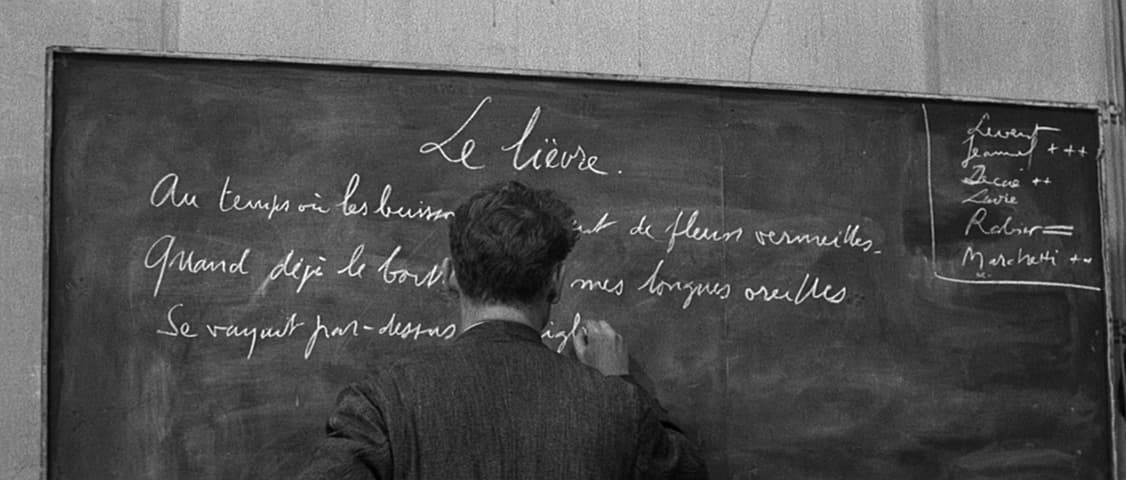 Le lièvre.
Au temps où les buisso nt de fleurs vermeilles.
Quand déjà le bout mes longues oreilles
Se voyait par-dessus igl
Jeannel +++
++
Robier =
Marchetti ++